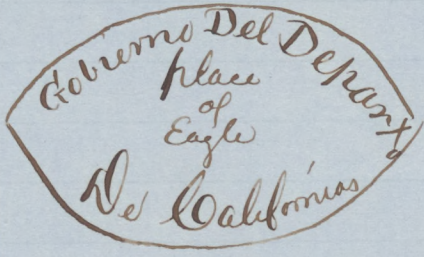 Gobierno Del Departo
place
of
Eagle
De Californias